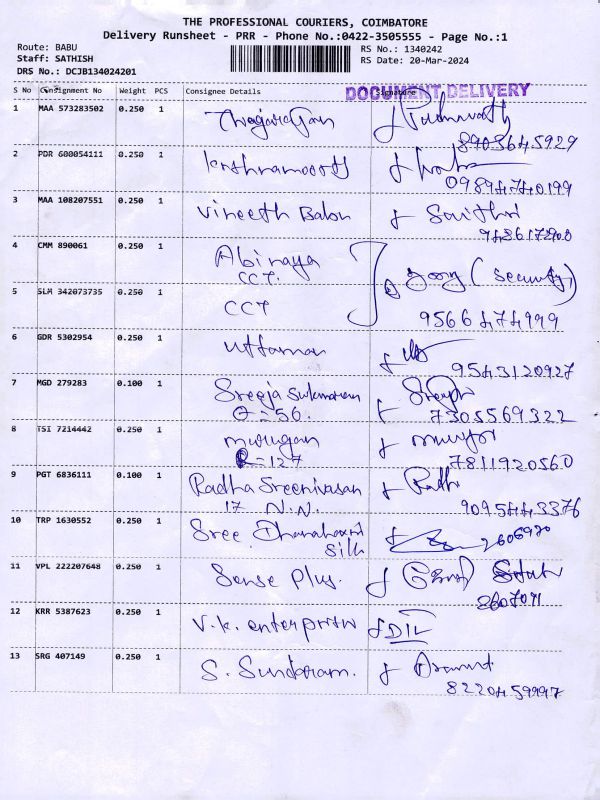 THE PROFESSIONAL COURIERS, COIMBATORE
Delivery Runsheet - PRR - Phone No.:0422-3505555 - Page No.:1
Route: BABU
Staff: SATHISH
DRS No.: DCJB134024201
RS No.: 1340242
RS Date: 20-Mar-2024
S No Consignment No Weight PCS Consignee Details Signature
DOCUMENT DELIVERY
1 MAA 573283502 0.250 1
8903645929
2 PDR 600054111 0.250 1
09894740199
3 MAA 108207551 0.250 1 Vineeth Babu
4 CMM 890061 0.250 1 Abinaya
CCT. (Security)
5 SLM 342073735 0.250 1 CCT
9566474999
6 GDR 5302954 0.250 1 Uttaman
9543120927
7 MGD 279283 0.100 1 Sreeja Sukumaran
56. 7305569322
8 TSI 7214442 0.250 1 Murugan
127 7811920560
9 PGT 6836111 0.100 1 Radha Sreenivasan
17 N.N. 9095443376
10 TRP 1630552 0.250 1 Sree
Silk 2606920
11 VPL 222207648 0.250 1 Sense Plus.
2607071
12 KRR 5387623 0.250 1 V.K. enterprise
13 SRG 407149 0.250 1 S. Sundaram.
8220459997